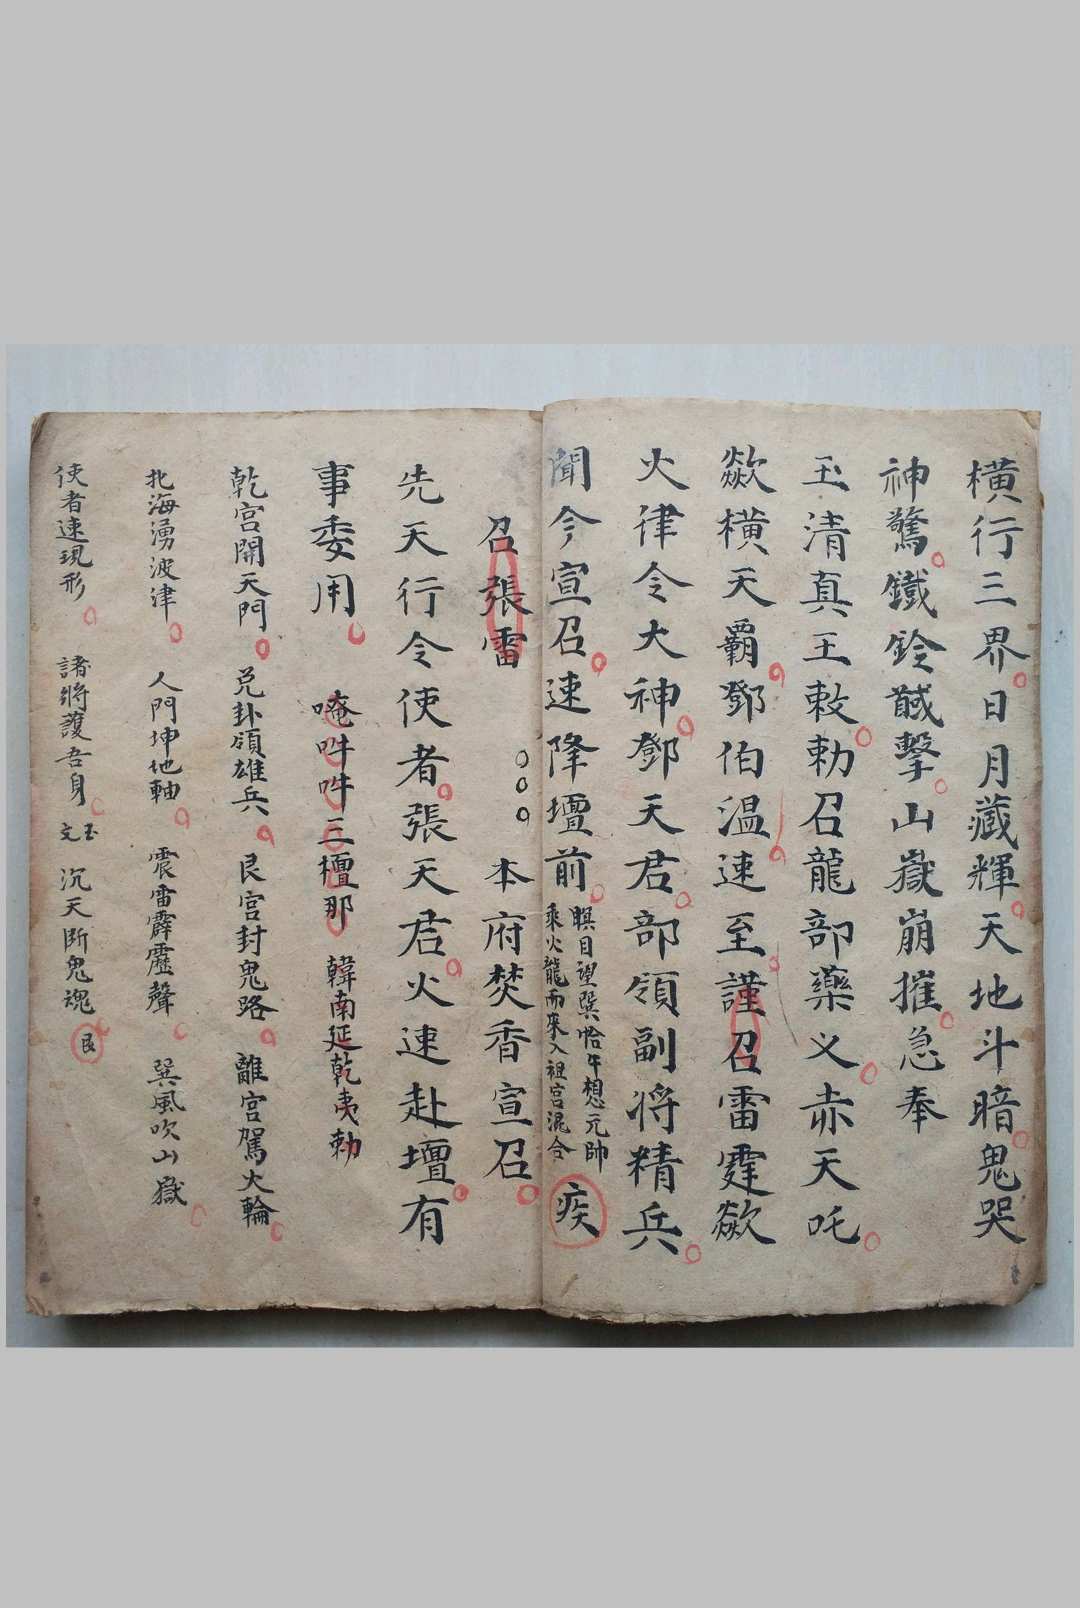 橫行三界日月藏輝天地斗暗鬼哭
神驚鐵鈴馘擊山嶽崩摧急奉
玉清真王敕勅召龍部藥乂赤天吒
歘橫天覇鄧伯溫速至謹召雷霆歘
火律令大神鄧天君部領副將精兵
聞今宣召速降壇前
瞑目望巽恰午想元帥
乘火龍而來入祖宫混合
疾
召張雷
本府焚香宣召
先天行令使者張天君火速赴壇有
事委用 唵吽吽三檀那 韓南延乾夷勅
乾宫開天門 兑卦領雄兵 艮宫封鬼路 離宫駕火輪
北海湧波津 人門坤地軸 震雷霹靂聲 巽風吹山嶽
使者速現形 諸將護吾身 玉文 沉天断鬼魂 艮